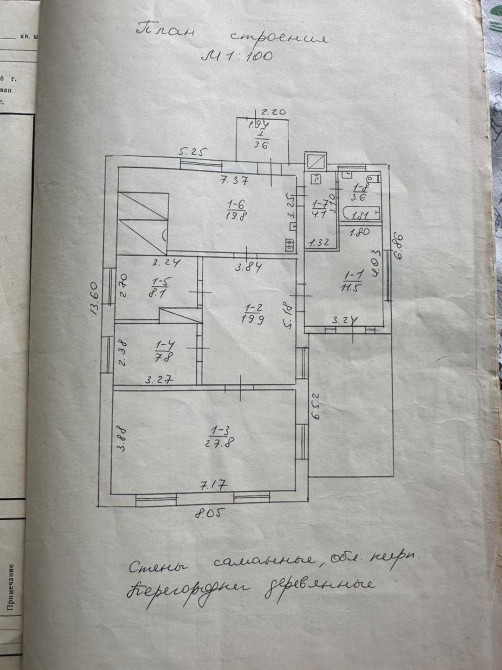 кв. м
8 г.
Примечание
План строения
М 1:100
2.20
1.94
I
3.6
5.25
7.37
1-6
19.8
3.25
1-7
4.1
3.10
1-8
3.6
1.81
1.80
1.32
3.24
3.84
1-5
8.1
2.70
1-2
19.9
5.18
1-1
11.5
4.03
6.86
3.24
13.60
1-4
7.8
2.38
3.27
6.52
1-3
27.8
3.88
7.17
8.05
Стены саманные, обл. кирп.
Перегородки деревянные